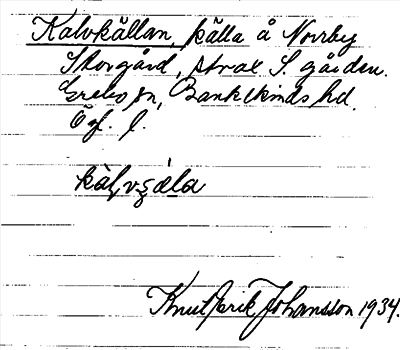 Kalvkällan, källa å Norrby
Storgård, strax S. gården.
sn, Bankekinds hd.
Ög. l.
Knut Erik Johansson 1934.